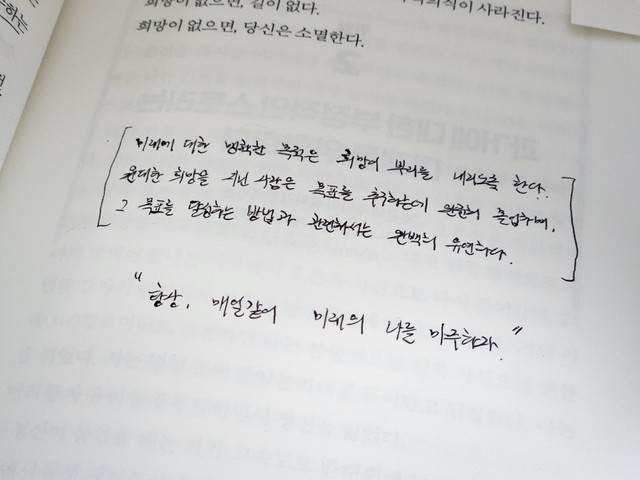 하는
희망이 없으면, 길이 없다.
사라진다.
희망이 없으면, 당신은 소멸한다.
미래에 대한 명확한 목적은 희망이 뿌리를 내리도록 한다.
위대한 희망을 지닌 사람은 목표를 추구하는데 완전히 몰입하며,
그 목표를 달성하는 방법과 관련해서는 완벽히 유연하다.
"항상, 매일같이 미래의 나를 마주하라."